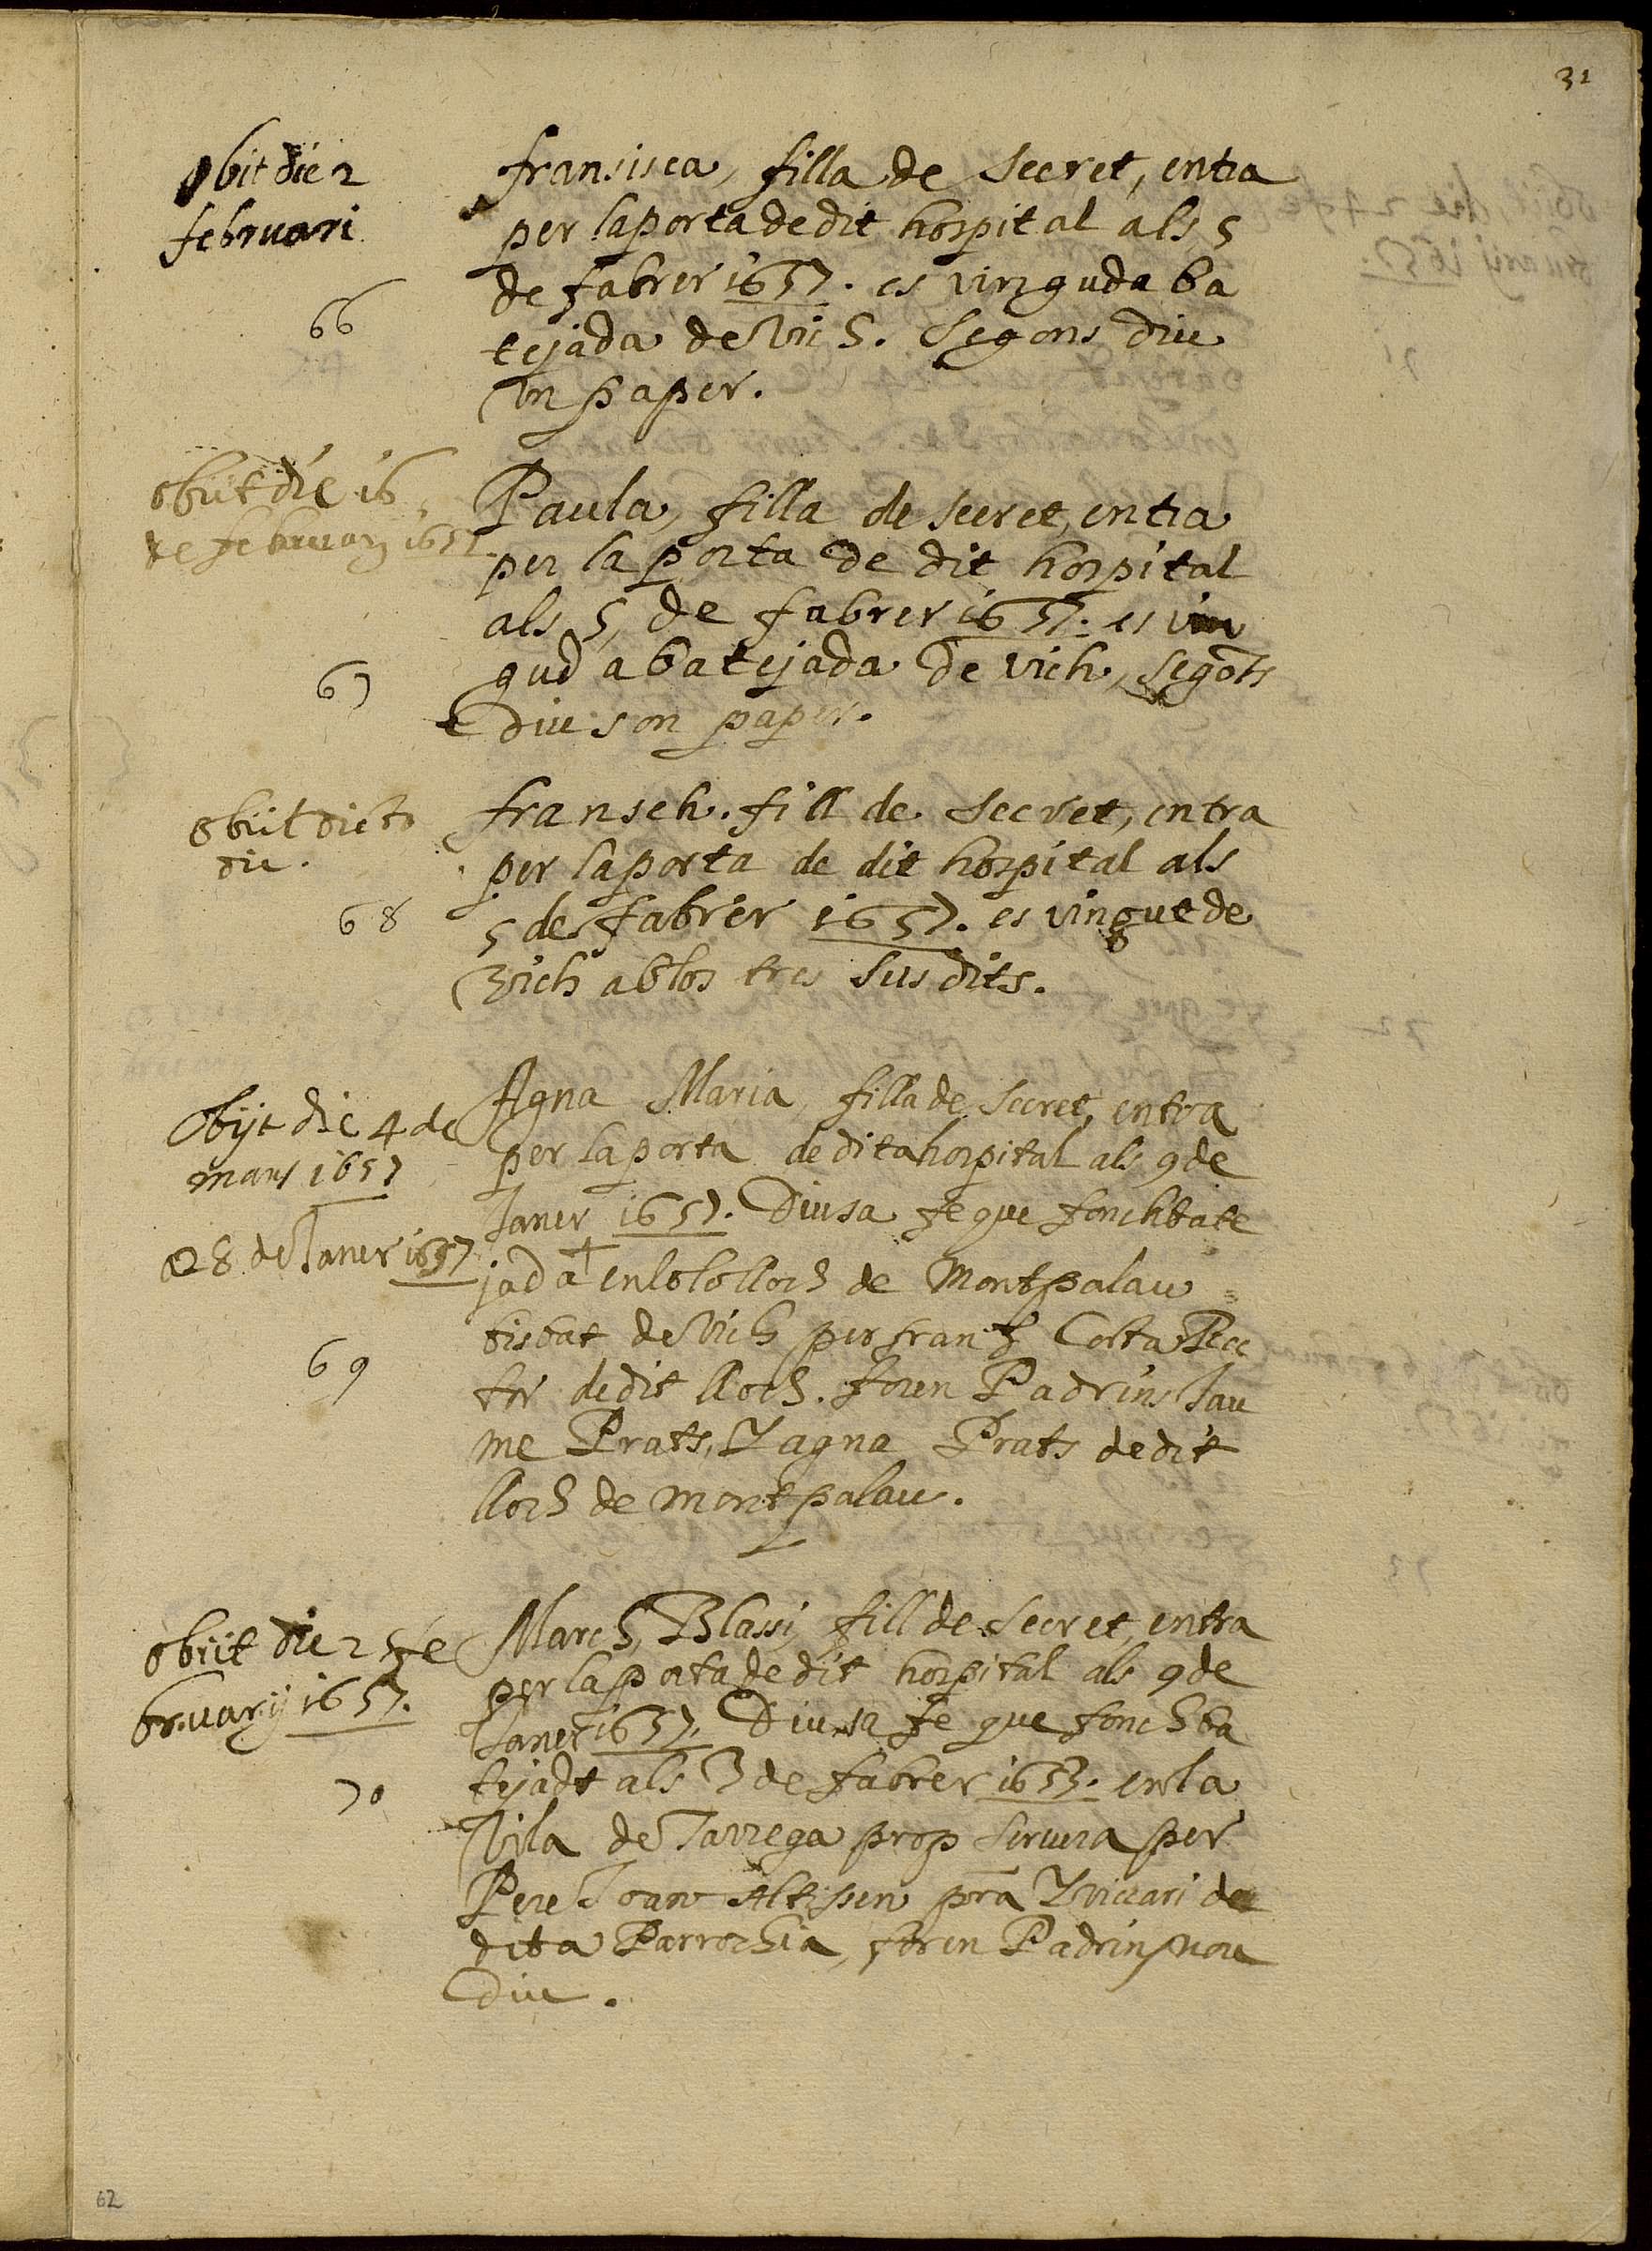 31
obit die 2
februari
66
fransisca, filla de secret, entra
per laporta de dit hospital als 5
de fabrer 1657. es vinguda ba
tejada de Vich. Segons diu
un paper.
obiit die 16
de februarij 1657
67
Paula, filla de secret, entra
per la porta de dit hospital
als 5, de fabrer 1657. es vin
gud abatejada de vich, segons
diu son paper.
obiit dicto
die.
68
fransch. fill de secret, entra
per laporta de dit hospital als
5 de fabrer 1657. es vingut de
Vich ablos tres susdits.
Obijt die 4 de
mars 1657
a 8 de Janer 1657
69
Agna Maria, filla de secret, entra
per laporta de dita hospital als 9 de
Janer 1657. Diu sa fe que fonch bate
jada + enlo lo lloch de Montpalau
bisbat de Vich per fran.ch Costa Rec
tor de dit lloch. foren Padrins Jau
me Prats, Y agna Prats de dit
lloch de montpalau.
obiit die 25 fe
bruarij 1657.
70
March, Blassi, fill de secret, entra
per laporta de dit hospital als 9 de
Janer 1657. Diu sa fe que fonch ba
tejadt als 3 de fabrer 1653. enla
Vila de Tarrega prop servera per
Pere Joan Altisen pra Y vicari de
dita Parrochia, foren Padrins nou
diu.
62